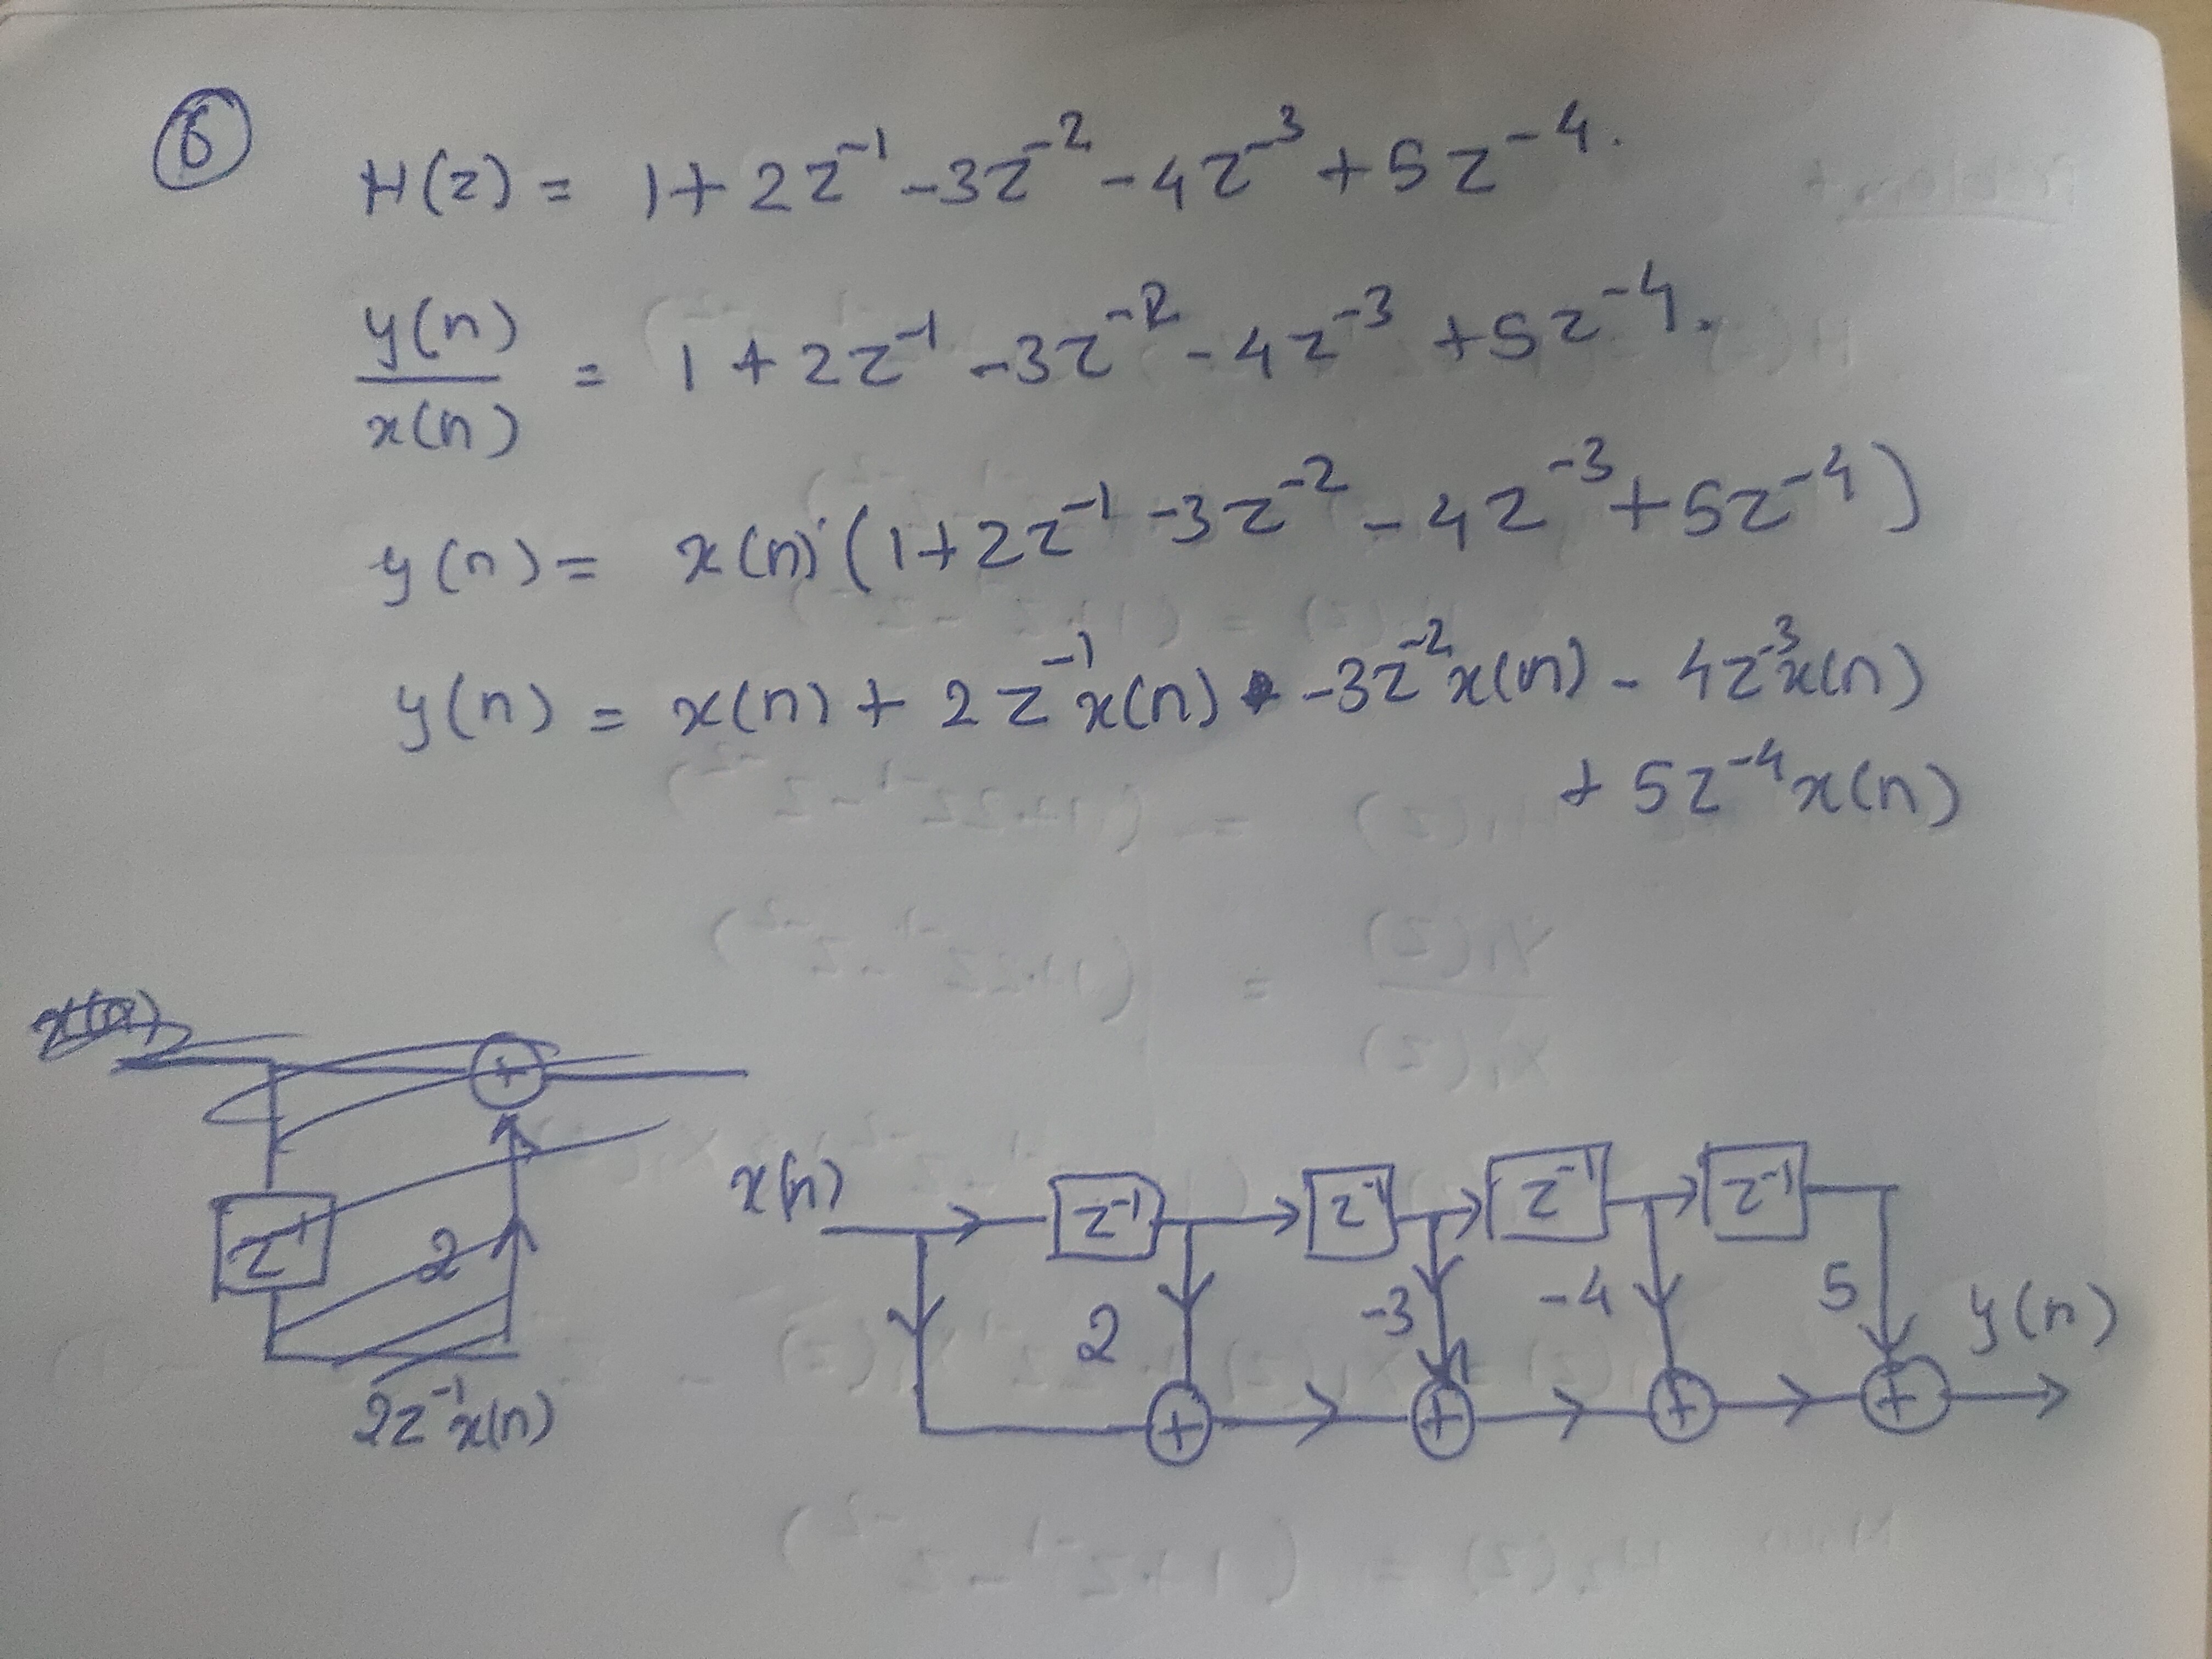 6
H(z) = 1 + 2z⁻¹ - 3z⁻² - 4z⁻³ + 5z⁻⁴.
y(n)
x(n)
= 1 + 2z⁻¹ - 3z⁻² - 4z⁻³ + 5z⁻⁴.
y(n) = x(n) (1 + 2z⁻¹ - 3z⁻² - 4z⁻³ + 5z⁻⁴)
y(n) = x(n) + 2z⁻¹x(n) - 3z⁻²x(n) - 4z⁻³x(n)
+ 5z⁻⁴x(n)
x(n)
+
z⁻¹
2
2z⁻¹x(n)
x(n) z⁻¹ z⁻¹ z⁻¹ z⁻¹
2 -3 -4 5 y(n)
+ + + +